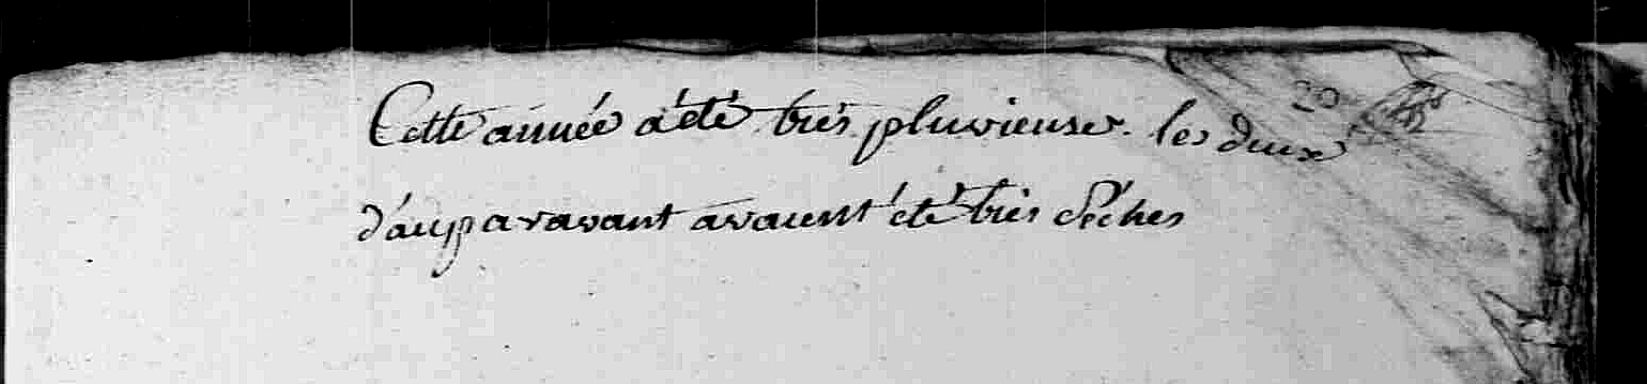 Cette année a été très pluvieuse. les deux
d'auparavant avaient été très séches
20